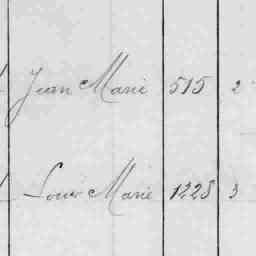 Jean Marie 515 2
Louis Marie 1228 3